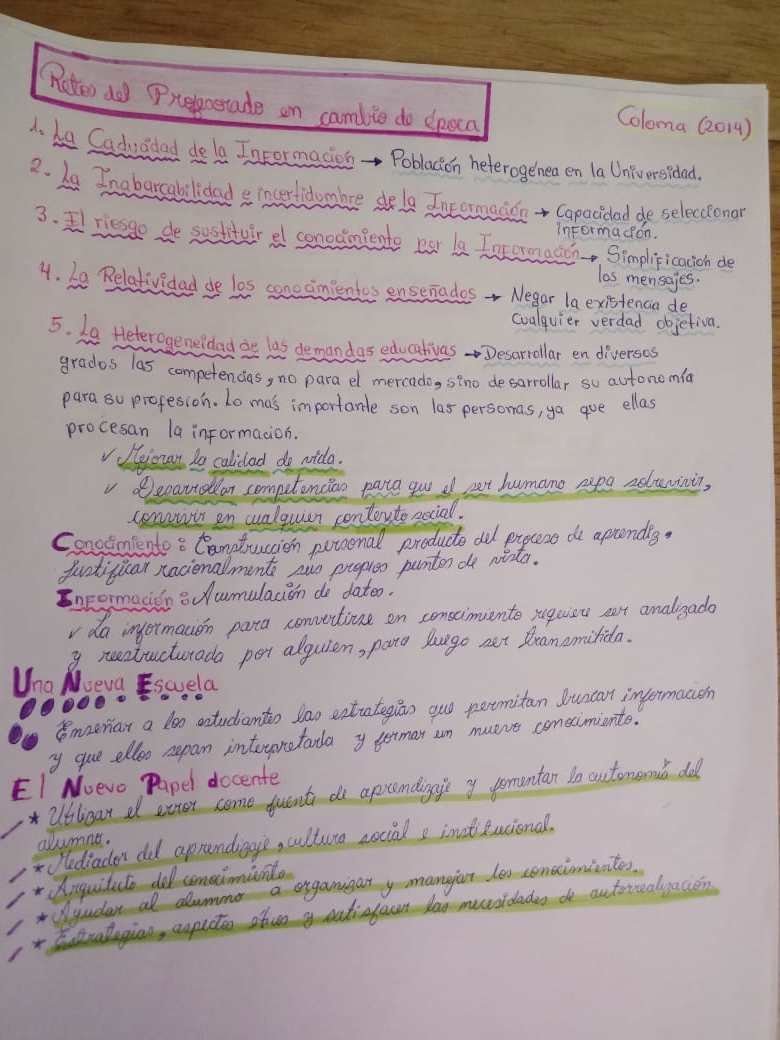 Retos del Profesorado en cambio de época
Coloma (2014)
1. La Caducidad de la Información → Población heterogénea en la Universidad.
2. La Inabarcabilidad e incertidumbre de la Información → Capacidad de seleccionar
información.
3. El riesgo de sustituir el conocimiento por la Información → Simplificación de
los mensajes.
4. La Relatividad de los conocimientos enseñados → Negar la existencia de
cualquier verdad objetiva.
5. La Heterogeneidad de las demandas educativas → Desarrollar en diversos
grados las competencias, no para el mercado, sino desarrollar su autonomía
para su profesión. Lo más importante son las personas, ya que ellas
procesan la información.
✓ Mejorar la calidad de vida.
✓ Desarrollar competencias para que el ser humano sepa sobrevivir,
convivir en cualquier contexto social.
Conocimiento: Construcción personal producto del proceso de aprendiz.
Justificar racionalmente sus propios puntos de vista.
Información: Acumulación de datos.
✓ La información para convertirse en conocimiento requiere ser analizada
y reestructurada por alguien, para luego ser transmitida.
Una Nueva Escuela
Enseñar a los estudiantes las estrategias que permitan buscar información
y que ellos sepan interpretarla y formar un nuevo conocimiento.
El Nuevo Papel docente
* Utilizar el error como fuente de aprendizaje y fomentar la autonomía del
alumno.
* Mediador del aprendizaje, cultura social e institucional.
* Arquitecto del conocimiento.
* Ayudar al alumno a organizar y manejar los conocimientos.
* Estrategias, aspectos éticos y satisfacer las necesidades de autorrealización.